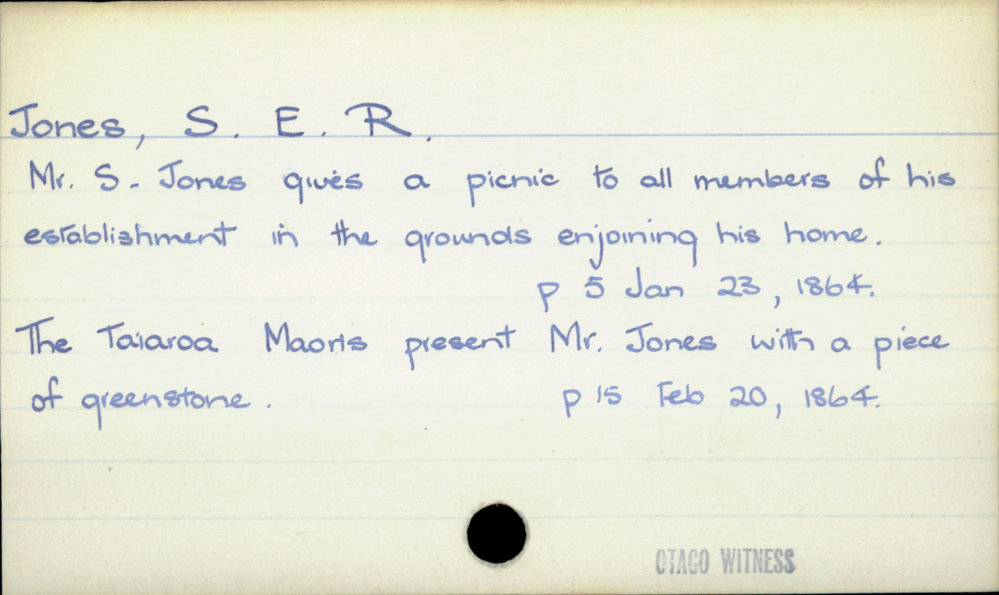 Jones, S. E. R.
Mr. S. Jones gives a picnic to all members of his
establishment in the grounds enjoining his home.
p 5 Jan 23, 1864.
The Taiaroa Maoris present Mr. Jones with a piece
of greenstone. p 15 Feb 20, 1864.
OTAGO WITNESS